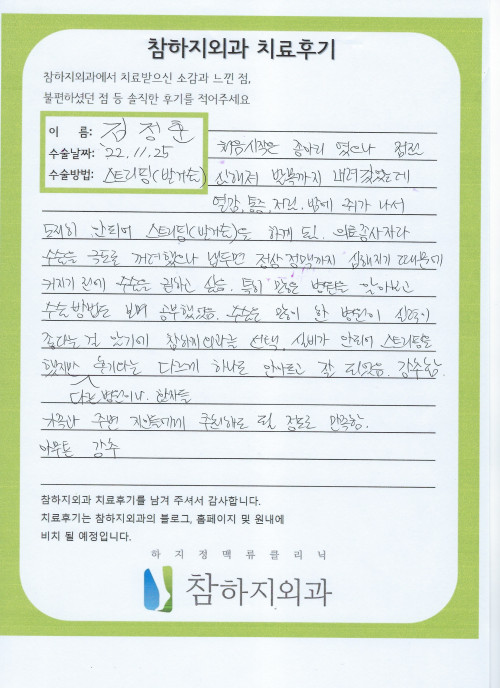 참하지외과 치료후기
참하지외과에서 치료받으신 소감과 느낀 점,
불편하셨던 점 등 솔직한 후기를 적어주세요
이 름: 김정훈
수술날짜: '22. 11. 25
수술방법: 스트리핑(반거손)
처음시작은 종아리 였으나 점점
심해져 발목까지 내려갔는데
열감, 통증, 저린. 밤에 쥐가 나서
도저히 안되어 스트리핑 을 하게 됨. 의료종사자라
수술을 극도로 꺼려했으나 냅두면 정상 정맥까지 심해지기 때문에
커지기 전에 수술을 권하고 싶음. 특히 많은 병원을 알아보고
수술방법도 보며 공부했었음. 수술을 많이 한 병원이 실력이
좋다는 걸 알기에 참하지외과를 선택. 실비가 안되어 스트리핑을
했지만 다르게 하나도 안아프고 잘 되었음. 강추함.
다른 병원이나. 환자들
가족과 주변 지인들에게 추천해도 될 정도로 만족함.
아무튼 강추
참하지외과 치료후기를 남겨 주셔서 감사합니다.
치료후기는 참하지외과의 블로그, 홈페이지 및 원내에
비치 될 예정입니다.
하지정맥류클리닉
참하지외과